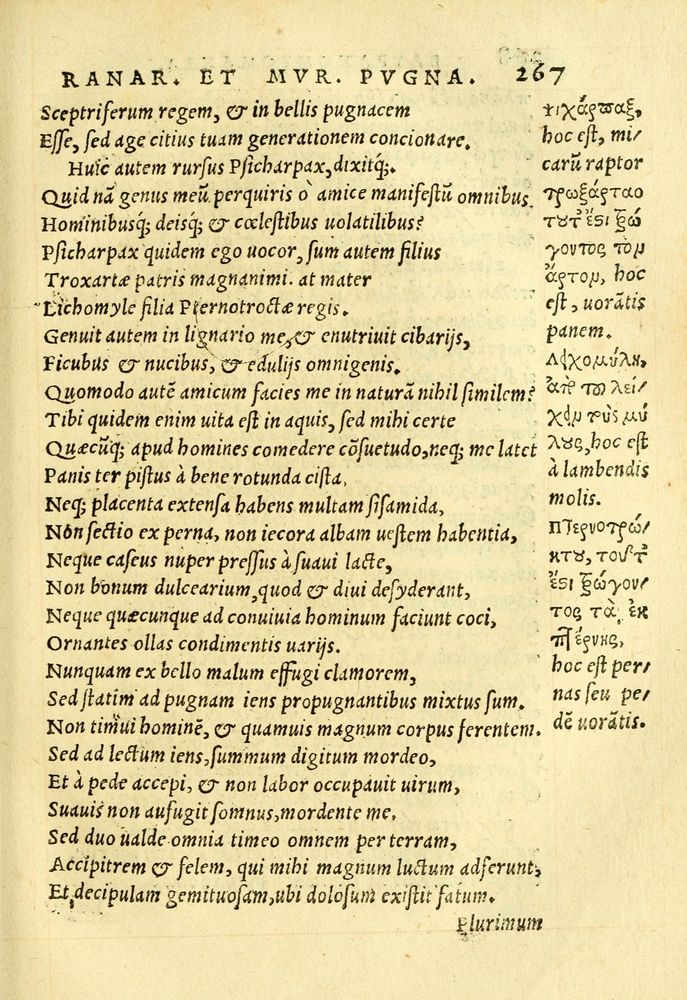 RANAR. ET MVR. PVGNA. 267
Sceptriferum regem, & in bellis pugnacem
Esse, sed age citius tuam generationem concionare.
Huic autem rursus Psicharpax, dixitq;.
Quid nā genus meū perquiris ò amice manifestū omnibus
Hominibusq; deisq; & cœlestibus uolatilibus?
Psicharpax quidem ego uocor, sum autem filius
Troxartæ patris magnanimi. at mater
Lichomyle filia Pternotroctæ regis.
Genuit autem in lignario me, & enutriuit cibarijs,
Ficubus & nucibus, & edulijs omnigenis.
Quomodo autē amicum facies me in naturā nihil similem?
Tibi quidem enim uita est in aquis, sed mihi certe
Quæcūq; apud homines comedere cōsuetudo, neq; me latet
Panis ter pistus à bene rotunda cista,
Neq; placenta extensa habens multam sisamida,
Nōn sectio ex perna, non iecora albam uestem habentia,
Neque caseus nuper pressus à suaui lacte,
Non bonum dulcearium, quod & diui desyderant,
Neque quæcunque ad conuiuia hominum faciunt coci,
Ornantes ollas condimentis uarijs.
Nunquam ex bello malum effugi clamorem,
Sed statim ad pugnam iens propugnantibus mixtus sum.
Non timui hominē, & quamuis magnum corpus ferentem.
Sed ad lectum iens, summum digitum mordeo,
Et à pede accepi, & non labor occupauit uirum,
Suauis non aufugit somnus, mordente me.
Sed duo ualde omnia timeo omnem per terram,
Accipitrem & felem, qui mihi magnum luctum adferunt,
Et decipulam gemituosam, ubi dolosum existit fatum.
Plurimum
ψιχάρπαξ,
hoc est, mi/
carū raptor
τρωξάρταο
τουτέστι τρώ
γοντος τὸν
ἄρτον, hoc
est, uorātis
panem.
Λειχομύλη,
ἀπὸ τοῦ λεί/
χειν τοὺς μύ
λους, hoc est
à lambendis
molis.
πτερνοτρώ/
κτου, τουτ
έστι τρώγον/
τος τὰς ἐκ
πτέρνης,
hoc est per/
nas seu pe/
dē uorātis.